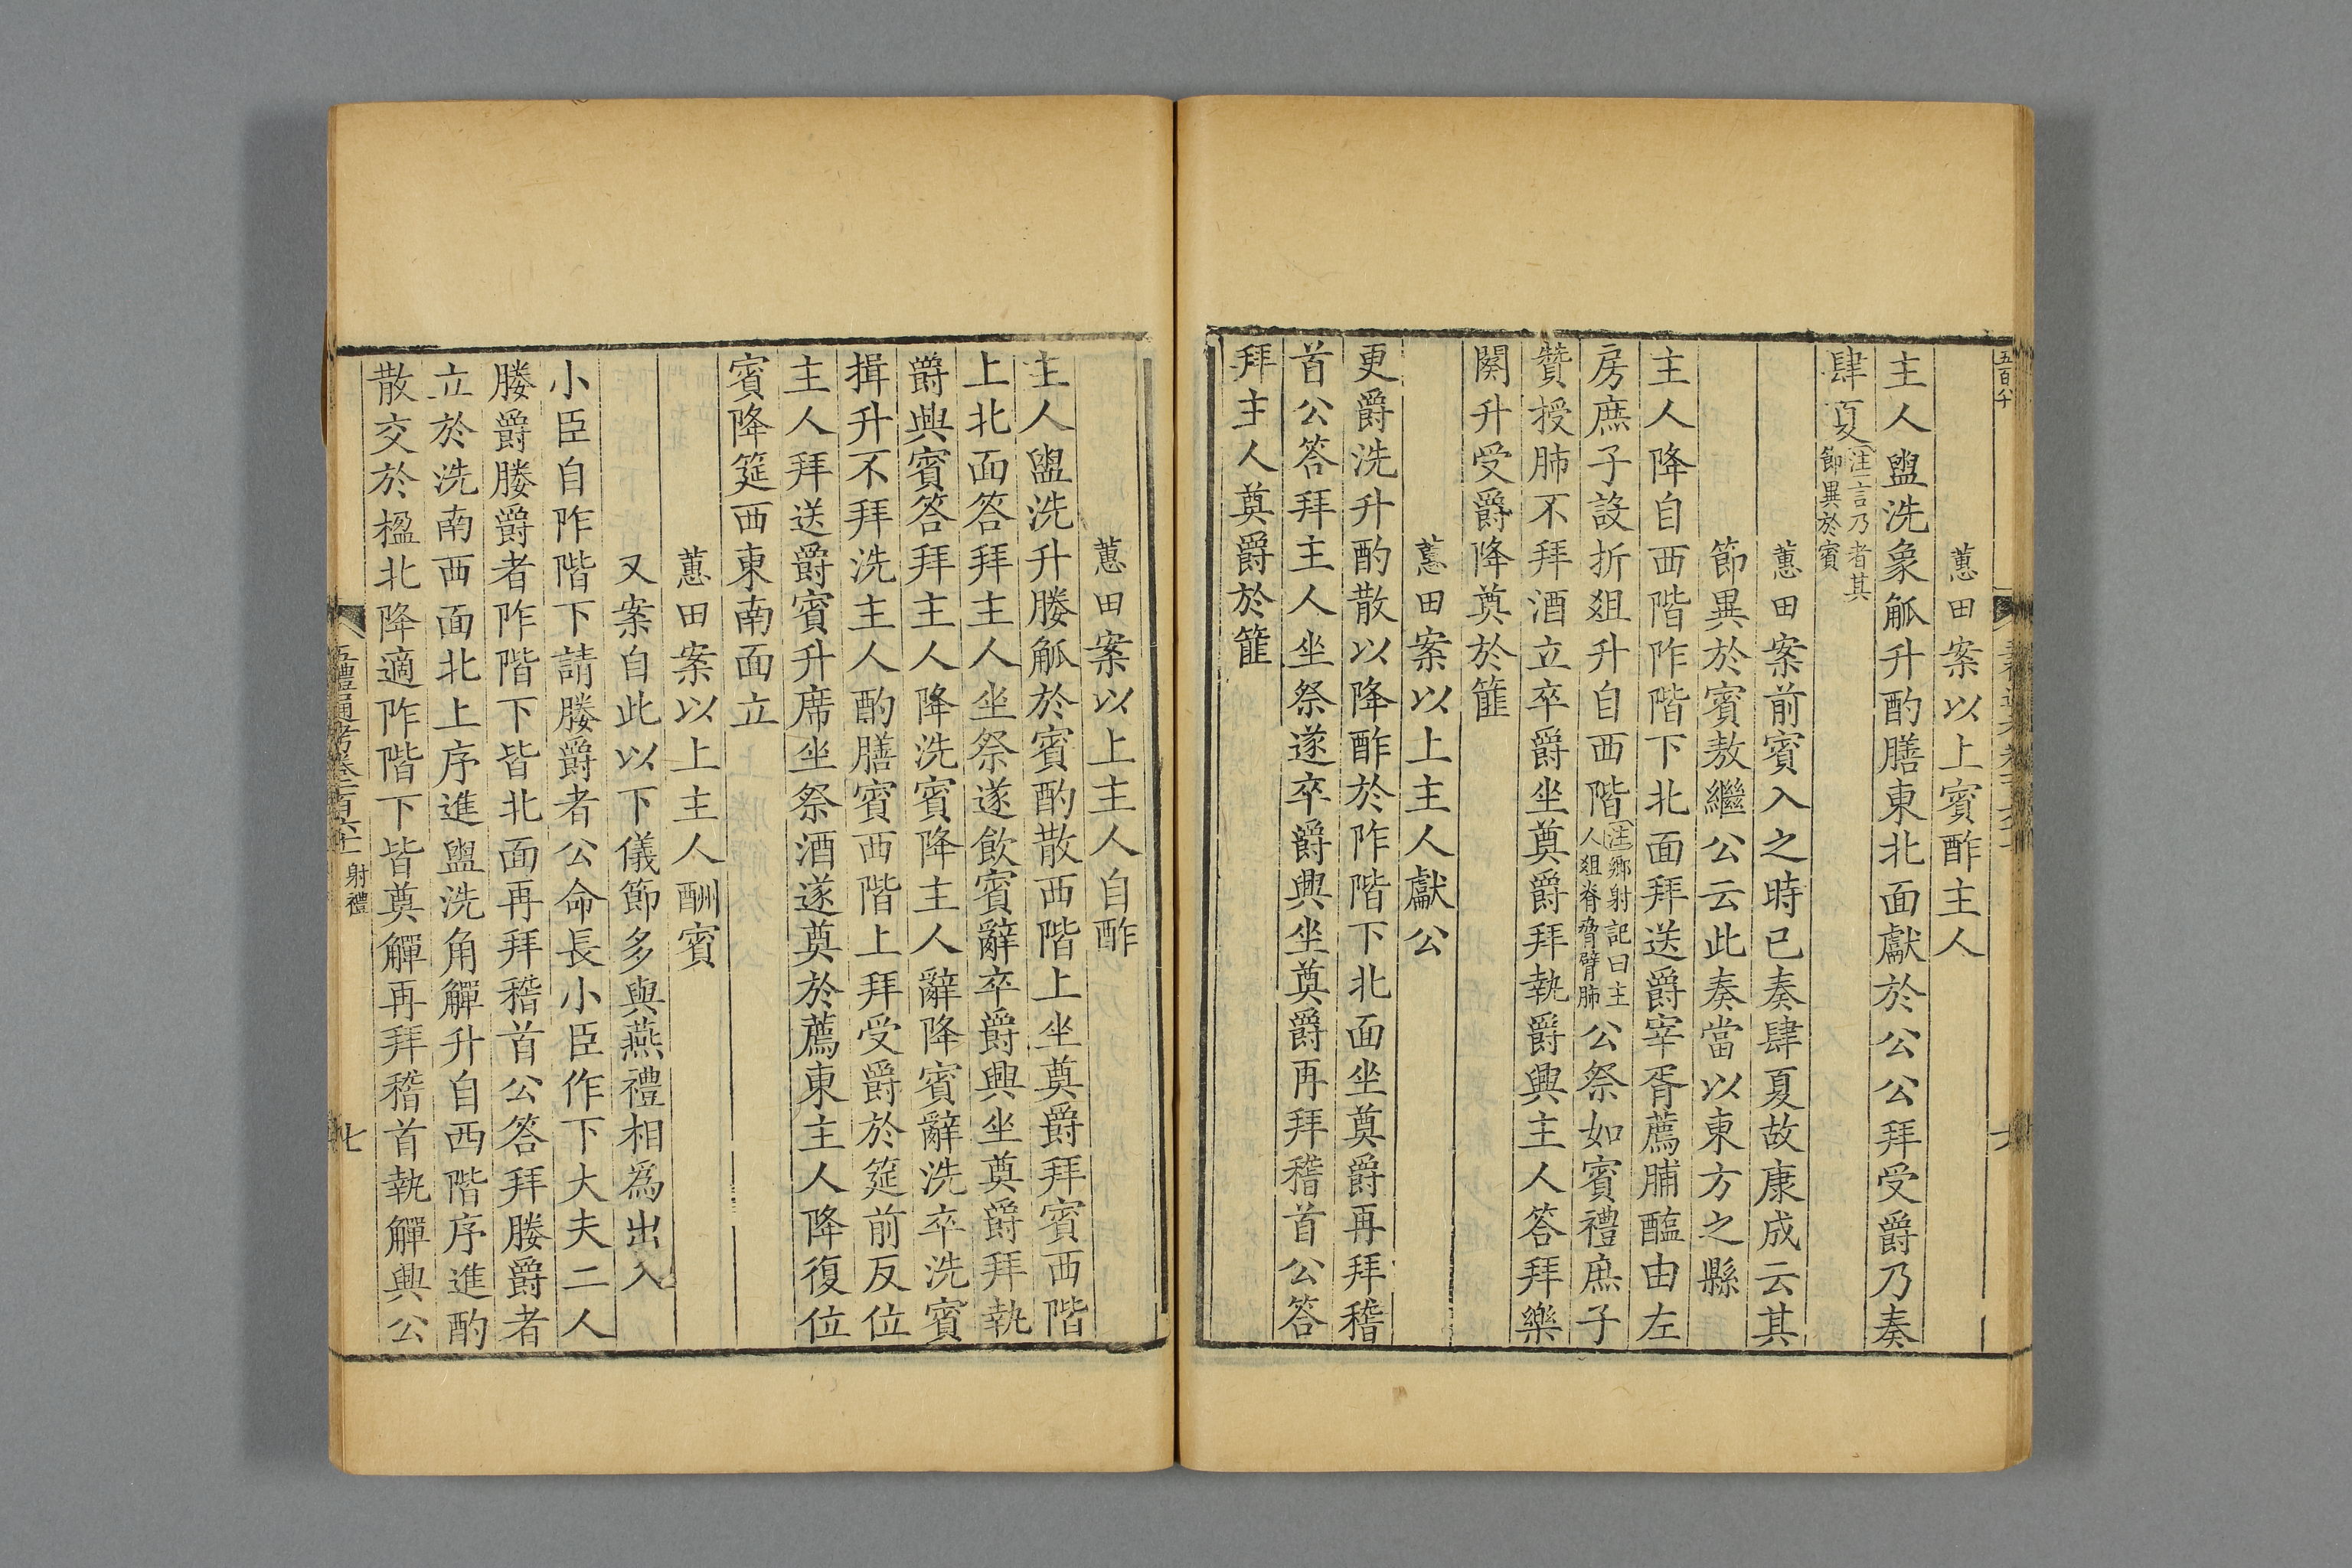 蕙田案以上賓酢主人
主人盥洗象觚升酌膳東北面獻於公公拜受爵乃奏
肆夏注言乃者其節異於賓
蕙田案前賓入之時已奏肆夏故康成云其
節異於賓敖繼公云此奏當以東方之縣
主人降自西階阼階下北面拜送爵宰胥薦脯醢由左
房庶子設折俎升自西階注鄉射記曰主人俎脊脅臂肺公祭如賓禮庶子
贊授肺不拜酒立卒爵坐奠爵拜執爵興主人答拜樂
闋升受爵降奠於篚
蕙田案以上主人獻公
更爵洗升酌散以降酢於阼階下北面坐奠爵再拜稽
首公答拜主人坐祭遂卒爵興坐奠爵再拜稽首公答
拜主人奠爵於篚
蕙田案以上主人自酢
主人盥洗升媵觚於賓酌散西階上坐奠爵拜賓西階
上北面答拜主人坐祭遂飲賓辭卒爵興坐奠爵拜執
爵興賓答拜主人降洗賓降主人辭降賓辭洗卒洗賓
揖升不拜洗主人酌膳賓西階上拜受爵於筵前反位
主人拜送爵賓升席坐祭酒遂奠於薦東主人降復位
賓降筵西東南面立
蕙田案以上主人酬賓
又案自此以下儀節多與燕禮相為出入
小臣自阼階下請媵爵者公命長小臣作下大夫二人
媵爵媵爵者阼階下皆北面再拜稽首公答拜媵爵者
立於洗南西面北上序進盥洗角觶升自西階序進酌
散交於楹北降適阼階下皆奠觶再拜稽首執觶興公
五禮通考卷一百六十一 射禮
七